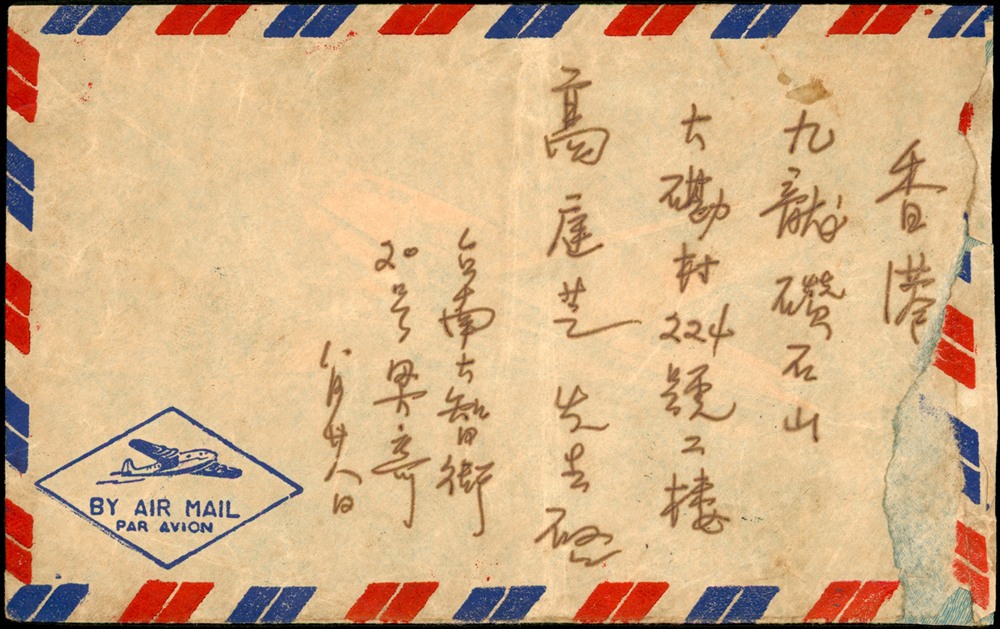 香港
九龍鑽石山
大磡村224號二樓
高庭芝先生啓
台南大智街
20号畀寄
八月廿八日
BY AIR MAIL
PAR AVION